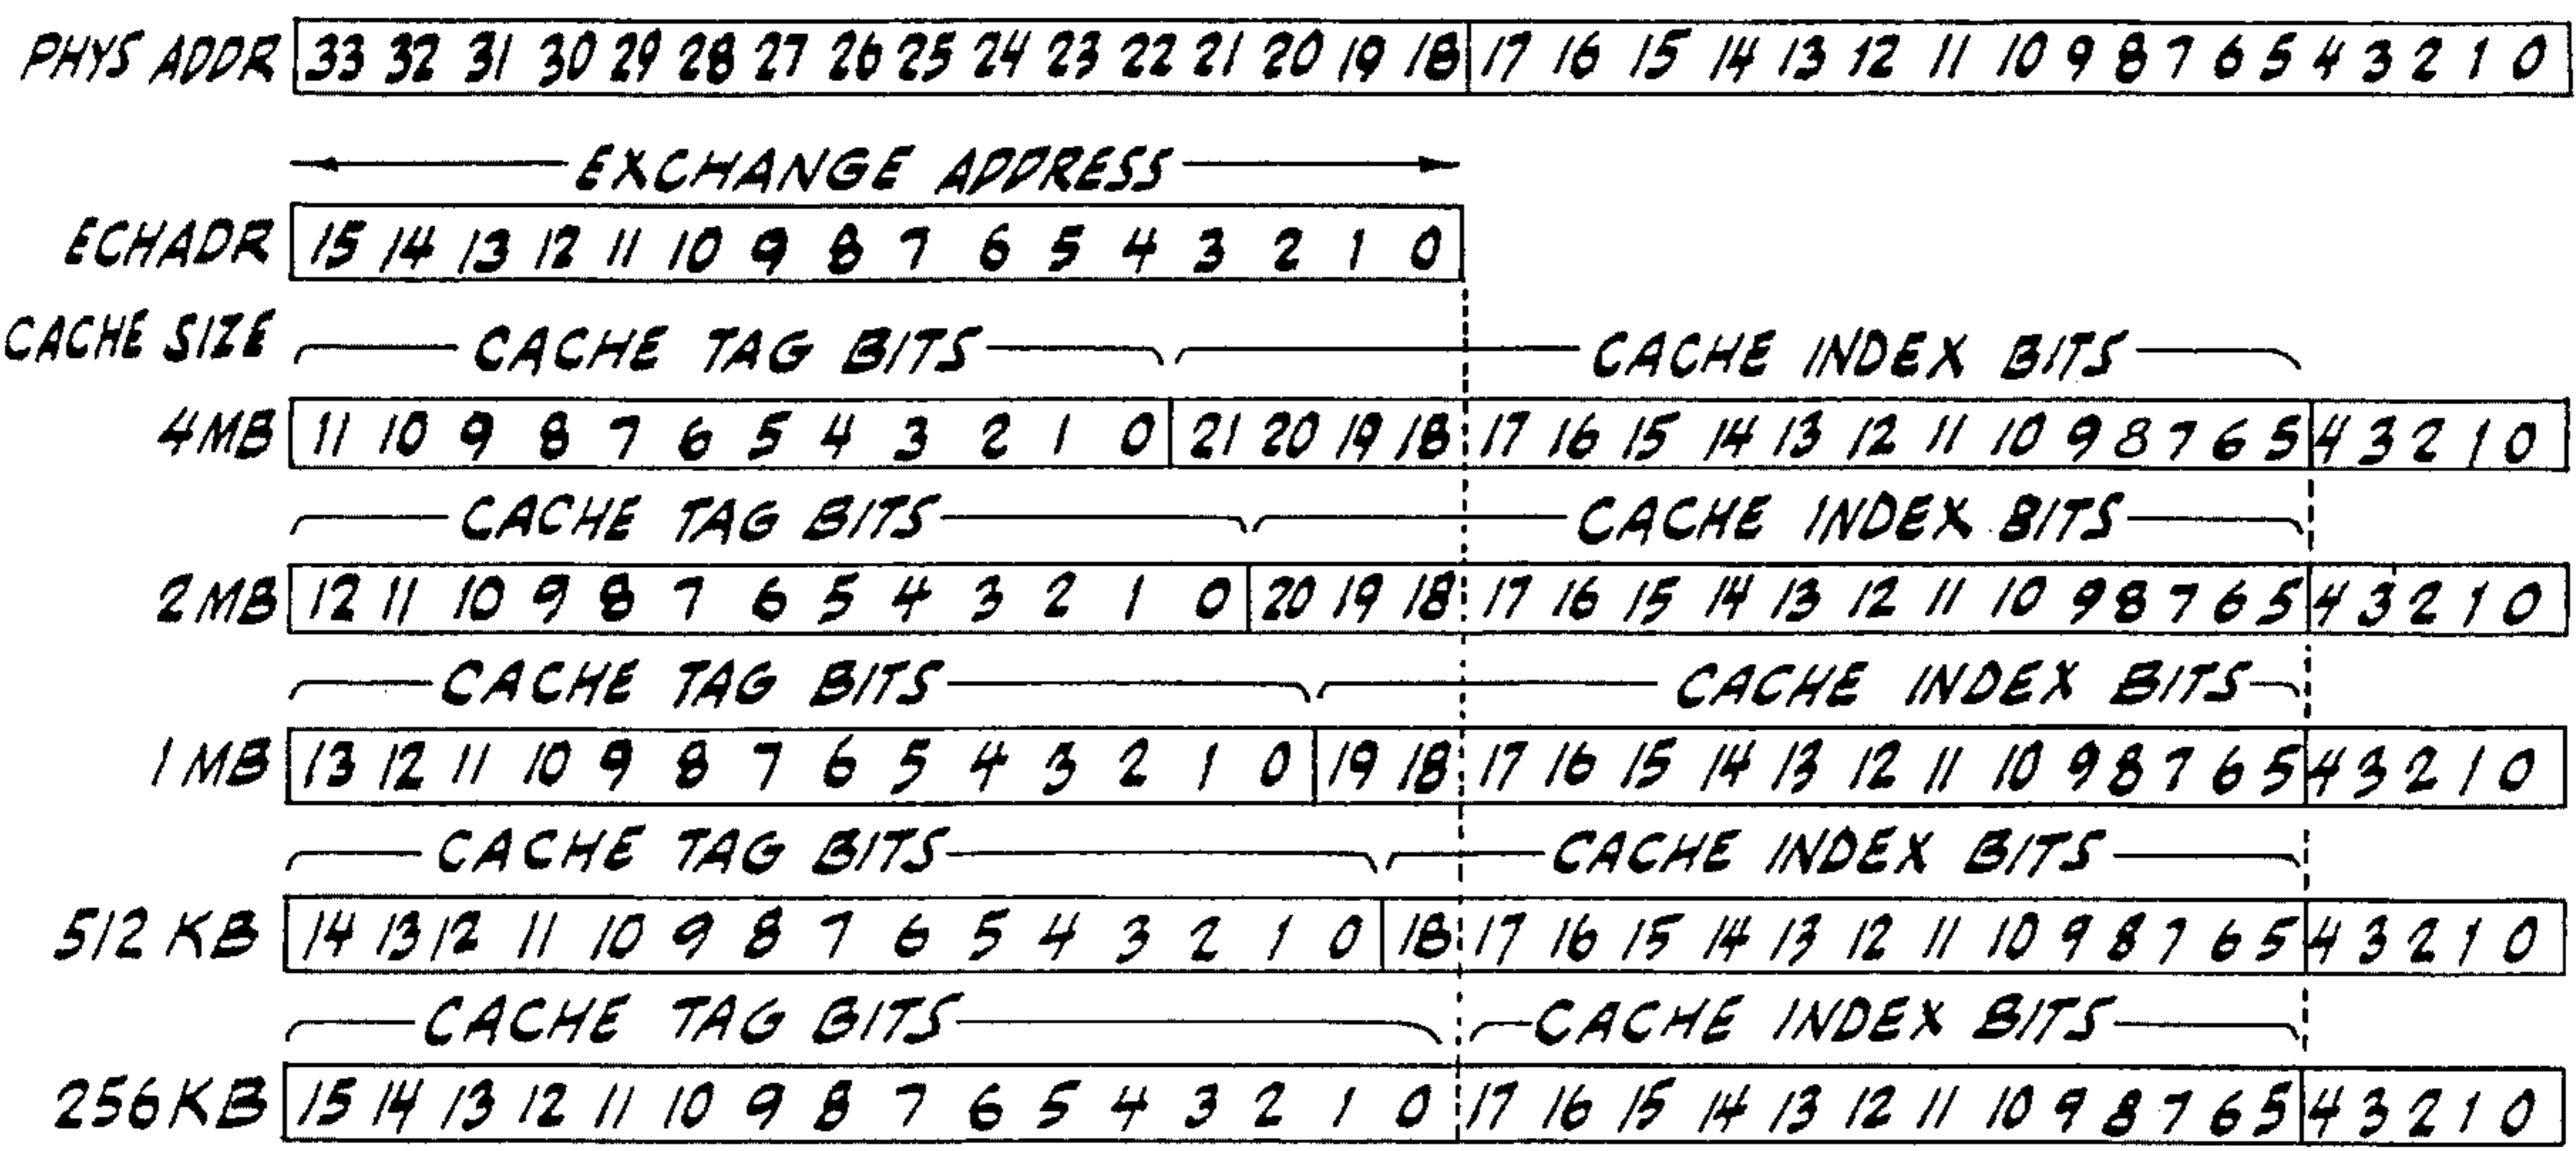 PHYS ADDR 33 32 31 30 29 28 27 26 25 24 23 22 21 20 19 18 17 16 15 14 13 12 11 10 9 8 7 6 5 4 3 2 1 0
EXCHANGE ADDRESS
ECHADR 15 14 13 12 11 10 9 8 7 6 5 4 3 2 1 0
CACHE SIZE CACHE TAG BITS CACHE INDEX BITS
4MB 11 10 9 8 7 6 5 4 3 2 1 0 21 20 19 18 17 16 15 14 13 12 11 10 9 8 7 6 5 4 3 2 1 0
CACHE TAG BITS CACHE INDEX BITS
2MB 12 11 10 9 8 7 6 5 4 3 2 1 0 20 19 18 17 16 15 14 13 12 11 10 9 8 7 6 5 4 3 2 1 0
CACHE TAG BITS CACHE INDEX BITS
1 MB 13 12 11 10 9 8 7 6 5 4 3 2 1 0 19 18 17 16 15 14 13 12 11 10 9 8 7 6 5 4 3 2 1 0
CACHE TAG BITS CACHE INDEX BITS
512 KB 14 13 12 11 10 9 8 7 6 5 4 3 2 1 0 18 17 16 15 14 13 12 11 10 9 8 7 6 5 4 3 2 1 0
CACHE TAG BITS CACHE INDEX BITS
256KB 15 14 13 12 11 10 9 8 7 6 5 4 3 2 1 0 17 16 15 14 13 12 11 10 9 8 7 6 5 4 3 2 1 0